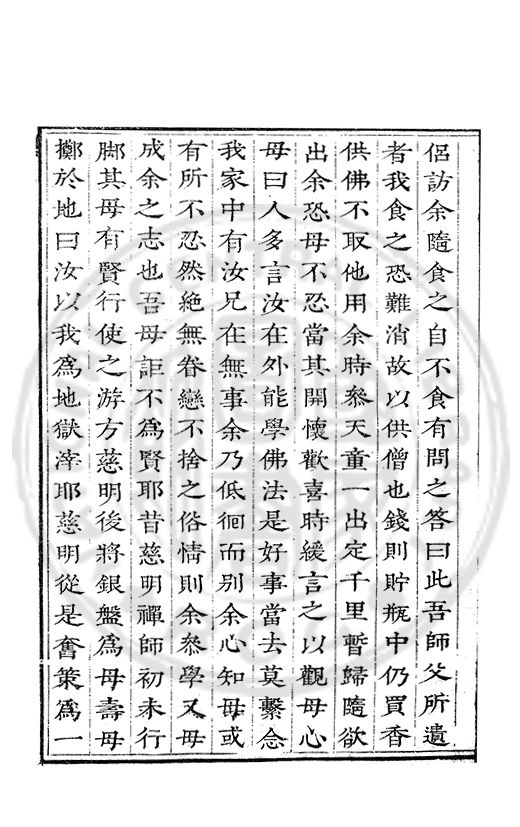 侶訪余隨食之自不食有問之答曰此吾師父所遺
者我食之恐難消故以供僧也錢則貯瓶中仍買香
供佛不取他用余時叅天童一出定千里暫歸隨欲
出余恐母不忍當其開懷歡喜時緩言之以觀母心
母曰人多言汝在外能學佛法是好事當去莫繫念
我家中有汝兄在無事余乃低徊而別余心知母或
有所不忍然絶無眷戀不捨之俗情則余叅學又毋
成余之志也吾母詎不為賢耶昔慈明禪師初未行
脚其母有賢行使之游方慈明後將銀盤為母壽母
擲於地曰汝以我為地獄滓耶慈明從是奮策為一